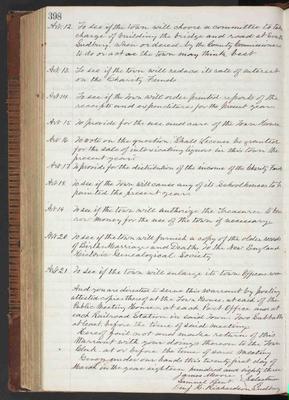 398
Art. 12. To see if the town will choose a committee to take
charge of building the bridge and road at East
Sudbury, when ordered by the County Commissioners
to do or act as the town may think best
Art. 13. To see if the town will reduce its rate of interest
on the Charity Funds
Art 14 To see if the town will order printed reports of the
receipts and expenditures for the present year
Art 15 To provide for the use and care of the Town House
Art 16 To vote on the question Shall Licenses be granted
for the sale of intoxicating liquors in this town the
present year?
Art 17 To provide for the distribution of the income of the Charity Fund
Art 18 To see if the town will cause any of its school houses to be
painted the present year
Art 19 To see if the town will authorize the Treasurer to
money for the use of the town if necessary
Art 20 To see if the town will furnish a copy of the older records
of Births Marriages and Deaths to the New England
Historic Genealogical Society
Art 21 To see if the town will enlarge its Town
And you are directed to serve this warrant by posting
attested copies thereof at the Town House, at each of the
Public Meeting Houses, at each Post Office and at
each Railroad Station in said town Two Sabbaths
at least before the time of said meeting
Hereof fail not and make return of this
Warrant with your doings thereon to the Town
Clerk at or before the time of said meeting
Given under our hands this twenty first day of
March in the year eighteen hundred and eighty three
James
Samuel Hunt Selectmen
Richardson Sudbury